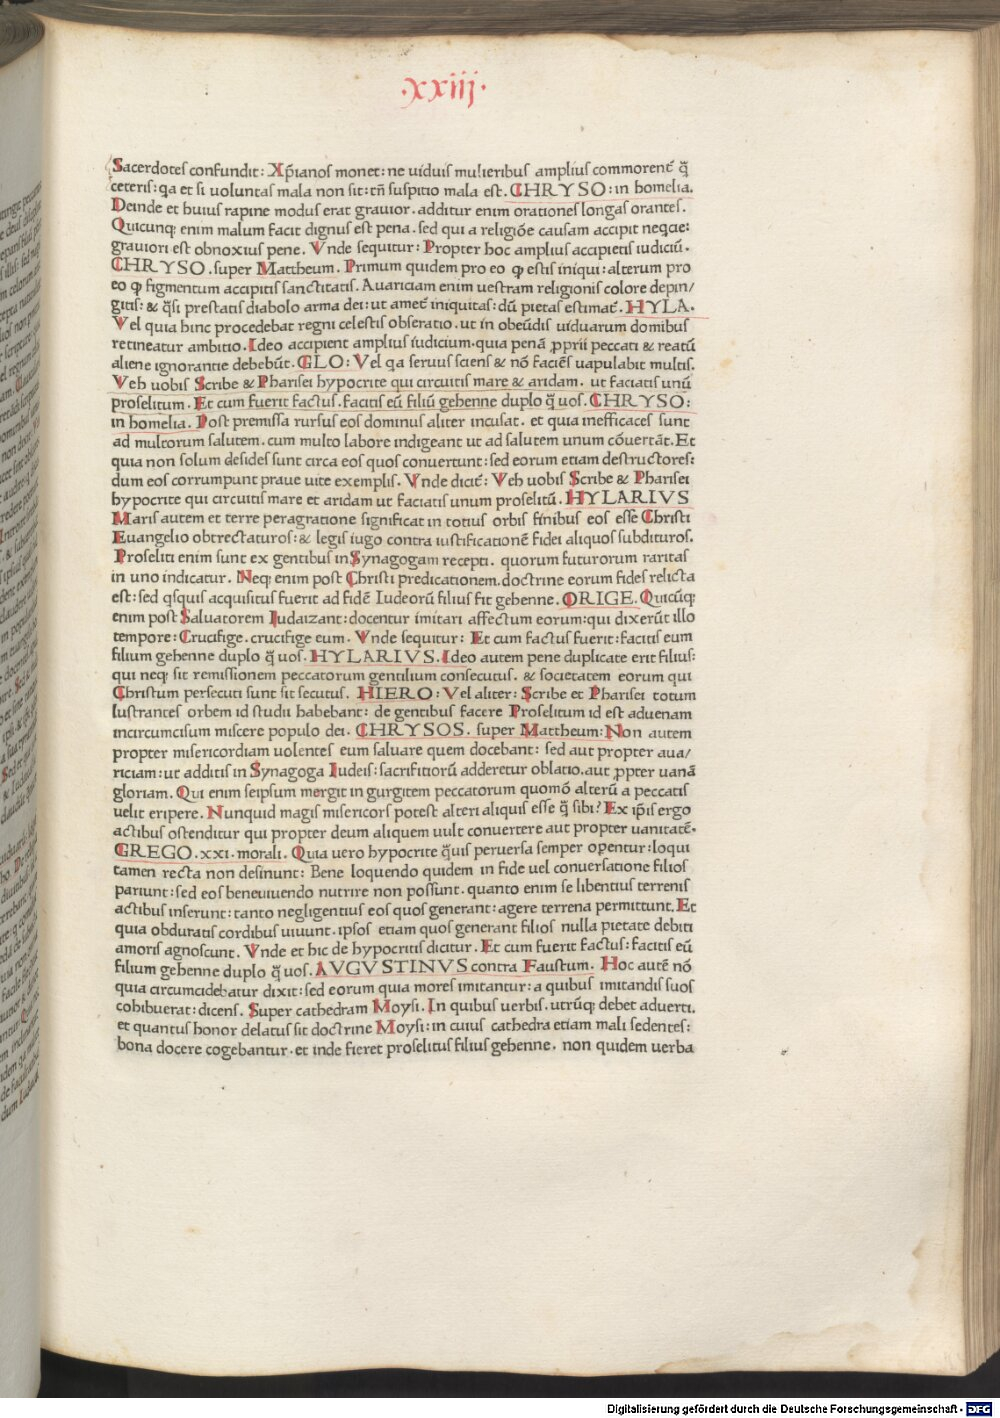 ·xxiij·
Sacerdotes confundit: Xp̄ianos monet: ne uiduis mulieribus amplius commorent᷑ q̄̃
ceteris: qa et si uoluntas mala non sit: tn̄ suspitio mala est. CHRYSO: in homelia.
Deinde et huius rapine modus erat grauior. additur enim orationes longas orantes.
Quicunq; enim malum facit dignus est pena. sed qui a religiōe causam accipit neqcie:
grauiori est obnoxius pene. Vnde sequitur: Propter hoc amplius accipietis iudiciū.
CHRYSO. super Mattheum. Primum quidem pro eo ꝙ estis iniqui: alterum pro
eo ꝙ figmentum accipitis sanctitatis. Auariciam enim uestram religionis colore depin/
gitis: & q̄si prestatis diabolo arma dei: ut amet᷑ iniquitas: dū pietas estimat᷑. HYLA.
Vel quia hinc procedebat regni celestis obseratio. ut in obeūdis uiduarum domibus
retineatur ambitio. Ideo accipient amplius iudicium. quia penā ꝓprii peccati & reatū
aliene ignorantie debebūt. GLO: Vel qa seruus sciens & nō faciēs uapulabit multis.
Veh uobis Scribe & Pharisei hypocrite qui circuitis mare & aridam. ut faciatis unū
proselitum. Et cum fuerit factus. facitis eū filiū gehenne duplo q̄ uos. CHRYSO:
in homelia. Post premissa rursus eos dominus aliter incusat. et quia inefficaces sunt
ad multorum salutem. cum multo labore indigeant ut ad salutem unum cōuertāt. Et
quia non solum desides sunt circa eos quos conuertunt: sed eorum etiam destructores:
dum eos corrumpunt praue uite exemplis. Vnde dicit᷑: Veh uobis Scribe & Pharisei
hypocrite qui circuitis mare et aridam ut faciatis unum proselitū. HYLARIVS
Maris autem et terre peragratione significat in totius orbis finibus eos esse Christi
Euangelio obtrectaturos: & legis iugo contra iustificationē fidei aliquos subdituros.
Proseliti enim sunt ex gentibus in Synagogam recepti. quorum futurorum raritas
in uno indicatur. Neq; enim post Christi predicationem. doctrine eorum fides relicta
est: sed qsquis acquisitus fuerit ad fidē Iudeorū filius fit gehenne. ORIGE. Quicūq;
enim post Saluatorem Iudaizant: docentur imitari affectum eorum: qui dixerūt illo
tempore: Crucifige. crucifige eum. Vnde sequitur: Et cum factus fuerit: facitis eum
filium gehenne duplo q̄ uos. HYLARIVS. Ideo autem pene duplicate erit filius:
qui neq; sit remissionem peccatorum gentilium consecutus. & societatem eorum qui
Christum persecuti sunt sit secutus. HIERO: Vel aliter: Scribe et Pharisei totum
lustrantes orbem id studii habebant: de gentibus facere Proselitum id est aduenam
incircumcisum miscere populo dei. CHRYSOS. super Mattheum: Non autem
propter misericordiam uolentes eum saluare quem docebant: sed aut propter aua/
riciam: ut additis in Synagoga Iudeis: sacrifitiorū adderetur oblatio. aut ꝓpter uanā
gloriam. Qui enim seipsum mergit in gurgitem peccatorum quomō alterū a peccatis
uelit eripere. Nunquid magis misericors potest alteri aliquis esse q̄ sibi? Ex ip̄is ergo
actibus ostenditur qui propter deum aliquem uult conuertere aut propter uanitatē.
GREGO. xxi. morali. Quia uero hypocrite q̄uis peruersa semper operentur: loqui
tamen recta non desinunt: Bene loquendo quidem in fide uel conuersatione filios
pariunt: sed eos beneuiuendo nutrire non possunt. quanto enim se libentius terrenis
actibus inserunt: tanto negligentius eos quos generant: agere terrena permittunt. Et
quia obduratis cordibus uiuunt. ipsos etiam quos generant filios nulla pietate debiti
amoris agnoscunt. Vnde et hic de hypocritis dicitur. Et cum fuerit factus: facitis eū
filium gehenne duplo q̄ uos. AVGVSTINVS contra Faustum. Hoc autē nō
quia circumcidebatur dixit: sed eorum quia mores imitantur: a quibus imitandis suos
cohibuerat: dicens. Super cathedram Moysi. In quibus uerbis. utrūq; debet aduerti.
et quantus honor delatus sit doctrine Moysi: in cuius cathedra etiam mali sedentes:
bona docere cogebantur. et inde fieret proselitus filius gehenne. non quidem uerba
Digitalisierung gefördert durch die Deutsche Forschungsgemeinschaft - DFG